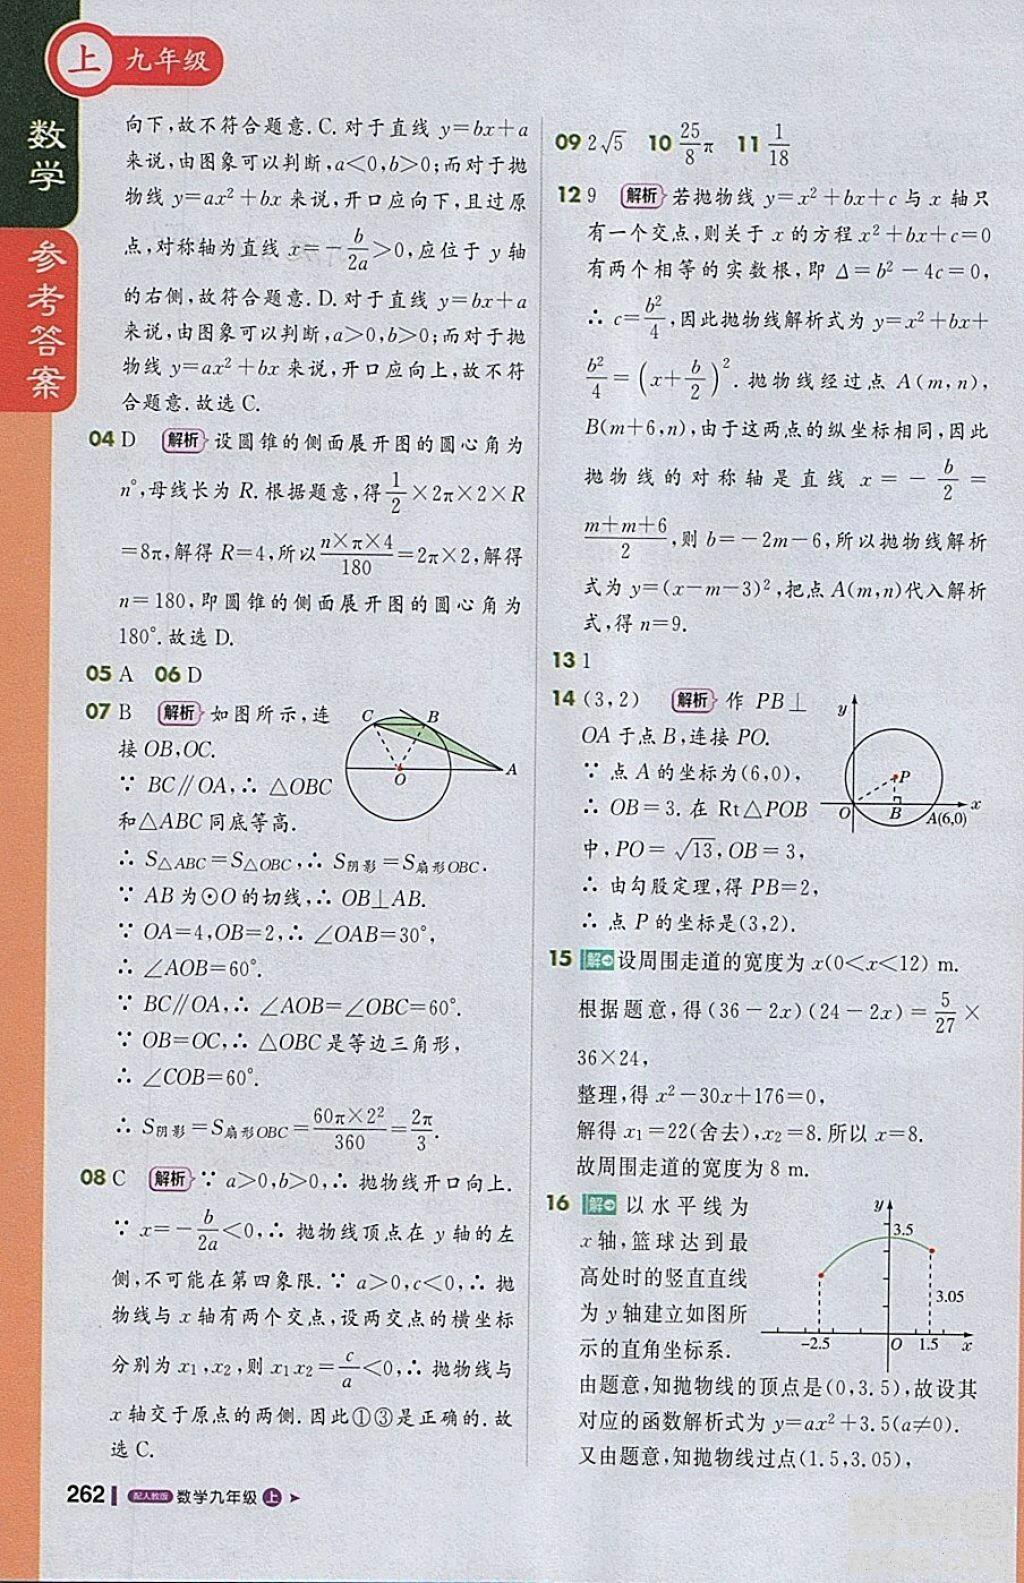 上 九年级
数学
参考答案
向下,故不符合题意.C.对于直线 y=bx+a
来说,由图象可以判断,a<0,b>0;而对于抛
物线 y=ax²+bx 来说,开口应向下,且过原
点,对称轴为直线 x=-b/2a>0,应位于 y 轴
的右侧,故符合题意.D.对于直线 y=bx+a
来说,由图象可以判断,a>0,b>0;而对于抛
物线 y=ax²+bx 来说,开口应向上,故不符
合题意.故选 C.
04 D 解析 设圆锥的侧面展开图的圆心角为
n°,母线长为 R.根据题意,得1/2×2π×2×R
=8π,解得 R=4,所以n×π×4/180=2π×2,解得
n=180,即圆锥的侧面展开图的圆心角为
180°.故选 D.
05 A 06 D
07 B 解析 如图所示,连
接 OB,OC.
∵ BC∥OA,∴ △OBC
和△ABC 同底等高.
∴ S△ABC=S△OBC,∴ S阴影=S扇形OBC.
∵ AB 为⊙O 的切线,∴ OB⊥AB.
∵ OA=4,OB=2,∴ ∠OAB=30°,
∴ ∠AOB=60°.
∵ BC∥OA,∴ ∠AOB=∠OBC=60°.
∵ OB=OC,∴ △OBC 是等边三角形,
∴ ∠COB=60°.
∴ S阴影=S扇形OBC=60π×2²/360=2π/3.
C B
O A
08 C 解析 ∵ a>0,b>0,∴ 抛物线开口向上.
∵ x=-b/2a<0,∴ 抛物线顶点在 y 轴的左
侧,不可能在第四象限.∵ a>0,c<0,∴ 抛
物线与 x 轴有两个交点,设两交点的横坐标
分别为 x₁,x₂,则 x₁x₂=c/a<0,∴ 抛物线与
x 轴交于原点的两侧.因此①③是正确的.故
选 C.
09 2√5 10 25/8π 11 1/18
12 9 解析 若抛物线 y=x²+bx+c 与 x 轴只
有一个交点,则关于 x 的方程 x²+bx+c=0
有两个相等的实数根,即 Δ=b²-4c=0,
∴ c=b²/4,因此抛物线解析式为 y=x²+bx+
b²/4=(x+b/2)².抛物线经过点 A(m,n),
B(m+6,n),由于这两点的纵坐标相同,因此
抛物线的对称轴是直线 x=-b/2=
m+m+6/2,则 b=-2m-6,所以抛物线解析
式为 y=(x-m-3)²,把点 A(m,n)代入解析
式,得 n=9.
13 1
14 (3,2) 解析 作 PB⊥
OA 于点 B,连接 PO.
∵ 点 A 的坐标为(6,0),
∴ OB=3.在 Rt△POB
中,PO=√13,OB=3,
∴ 由勾股定理,得 PB=2,
∴ 点 P 的坐标是(3,2).
y
P
O B A(6,0) x
15 解 设周围走道的宽度为 x(0<x<12) m.
根据题意,得(36-2x)(24-2x)=5/27×
36×24,
整理,得 x²-30x+176=0,
解得 x₁=22(舍去),x₂=8.所以 x=8.
故周围走道的宽度为 8 m.
16 解 以水平线为
x 轴,篮球达到最
高处时的竖直直线
为 y 轴建立如图所
示的直角坐标系.
y
3.5
3.05
-2.5 O 1.5 x
由题意,知抛物线的顶点是(0,3.5),故设其
对应的函数解析式为 y=ax²+3.5(a≠0).
又由题意,知抛物线过点(1.5,3.05),
262 配人教版 数学九年级 上